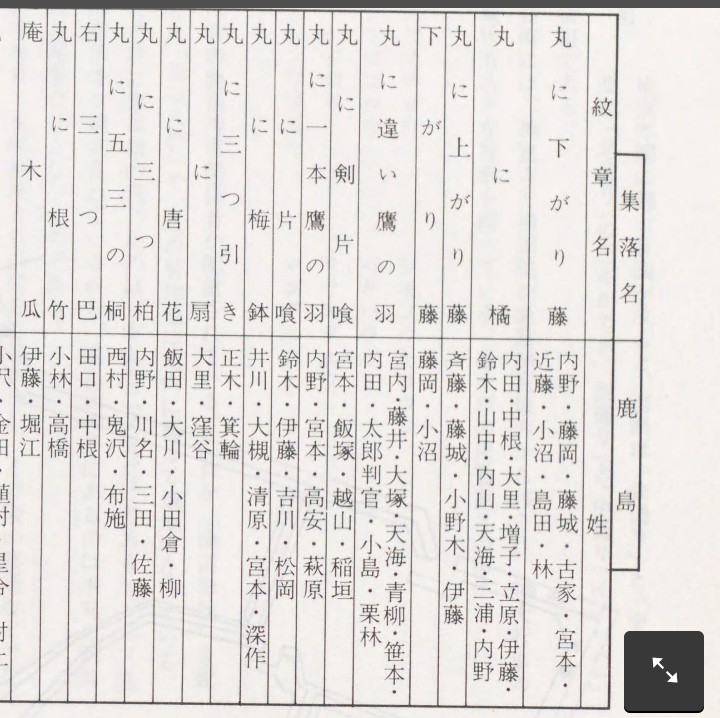 集落名
鹿島
紋章名
姓
丸に下がり藤
内野・藤岡・藤城・古家・宮本・
近藤・小沼・島田・林
丸に橘
内田・中根・大里・増子・立原・伊藤・
鈴木・山中・内山・天海・三浦・内野
丸に上がり藤
斉藤・藤城・小野木・伊藤
下がり藤
藤岡・小沼
丸に違い鷹の羽
宮内・藤井・大塚・天海・青柳・笹本・
内田・太郎判官・小島・栗林
丸に剣片喰
宮本・飯塚・越山・稲垣
丸に一本鷹の羽
内野・宮本・高安・萩原
丸に片喰
鈴木・伊藤・吉川・松岡
丸に梅鉢
井川・大槻・清原・宮本・深作
丸に三つ引き
正木・箕輪
丸に扇
大里・窪谷
丸に唐花
飯田・大川・小田倉・柳
丸に三つ柏
内野・川名・三田・佐藤
丸に五三の桐
西村・鬼沢・布施
右三つ巴
田口・中根
丸に根竹
小林・高橋
庵木瓜
伊藤・堀江